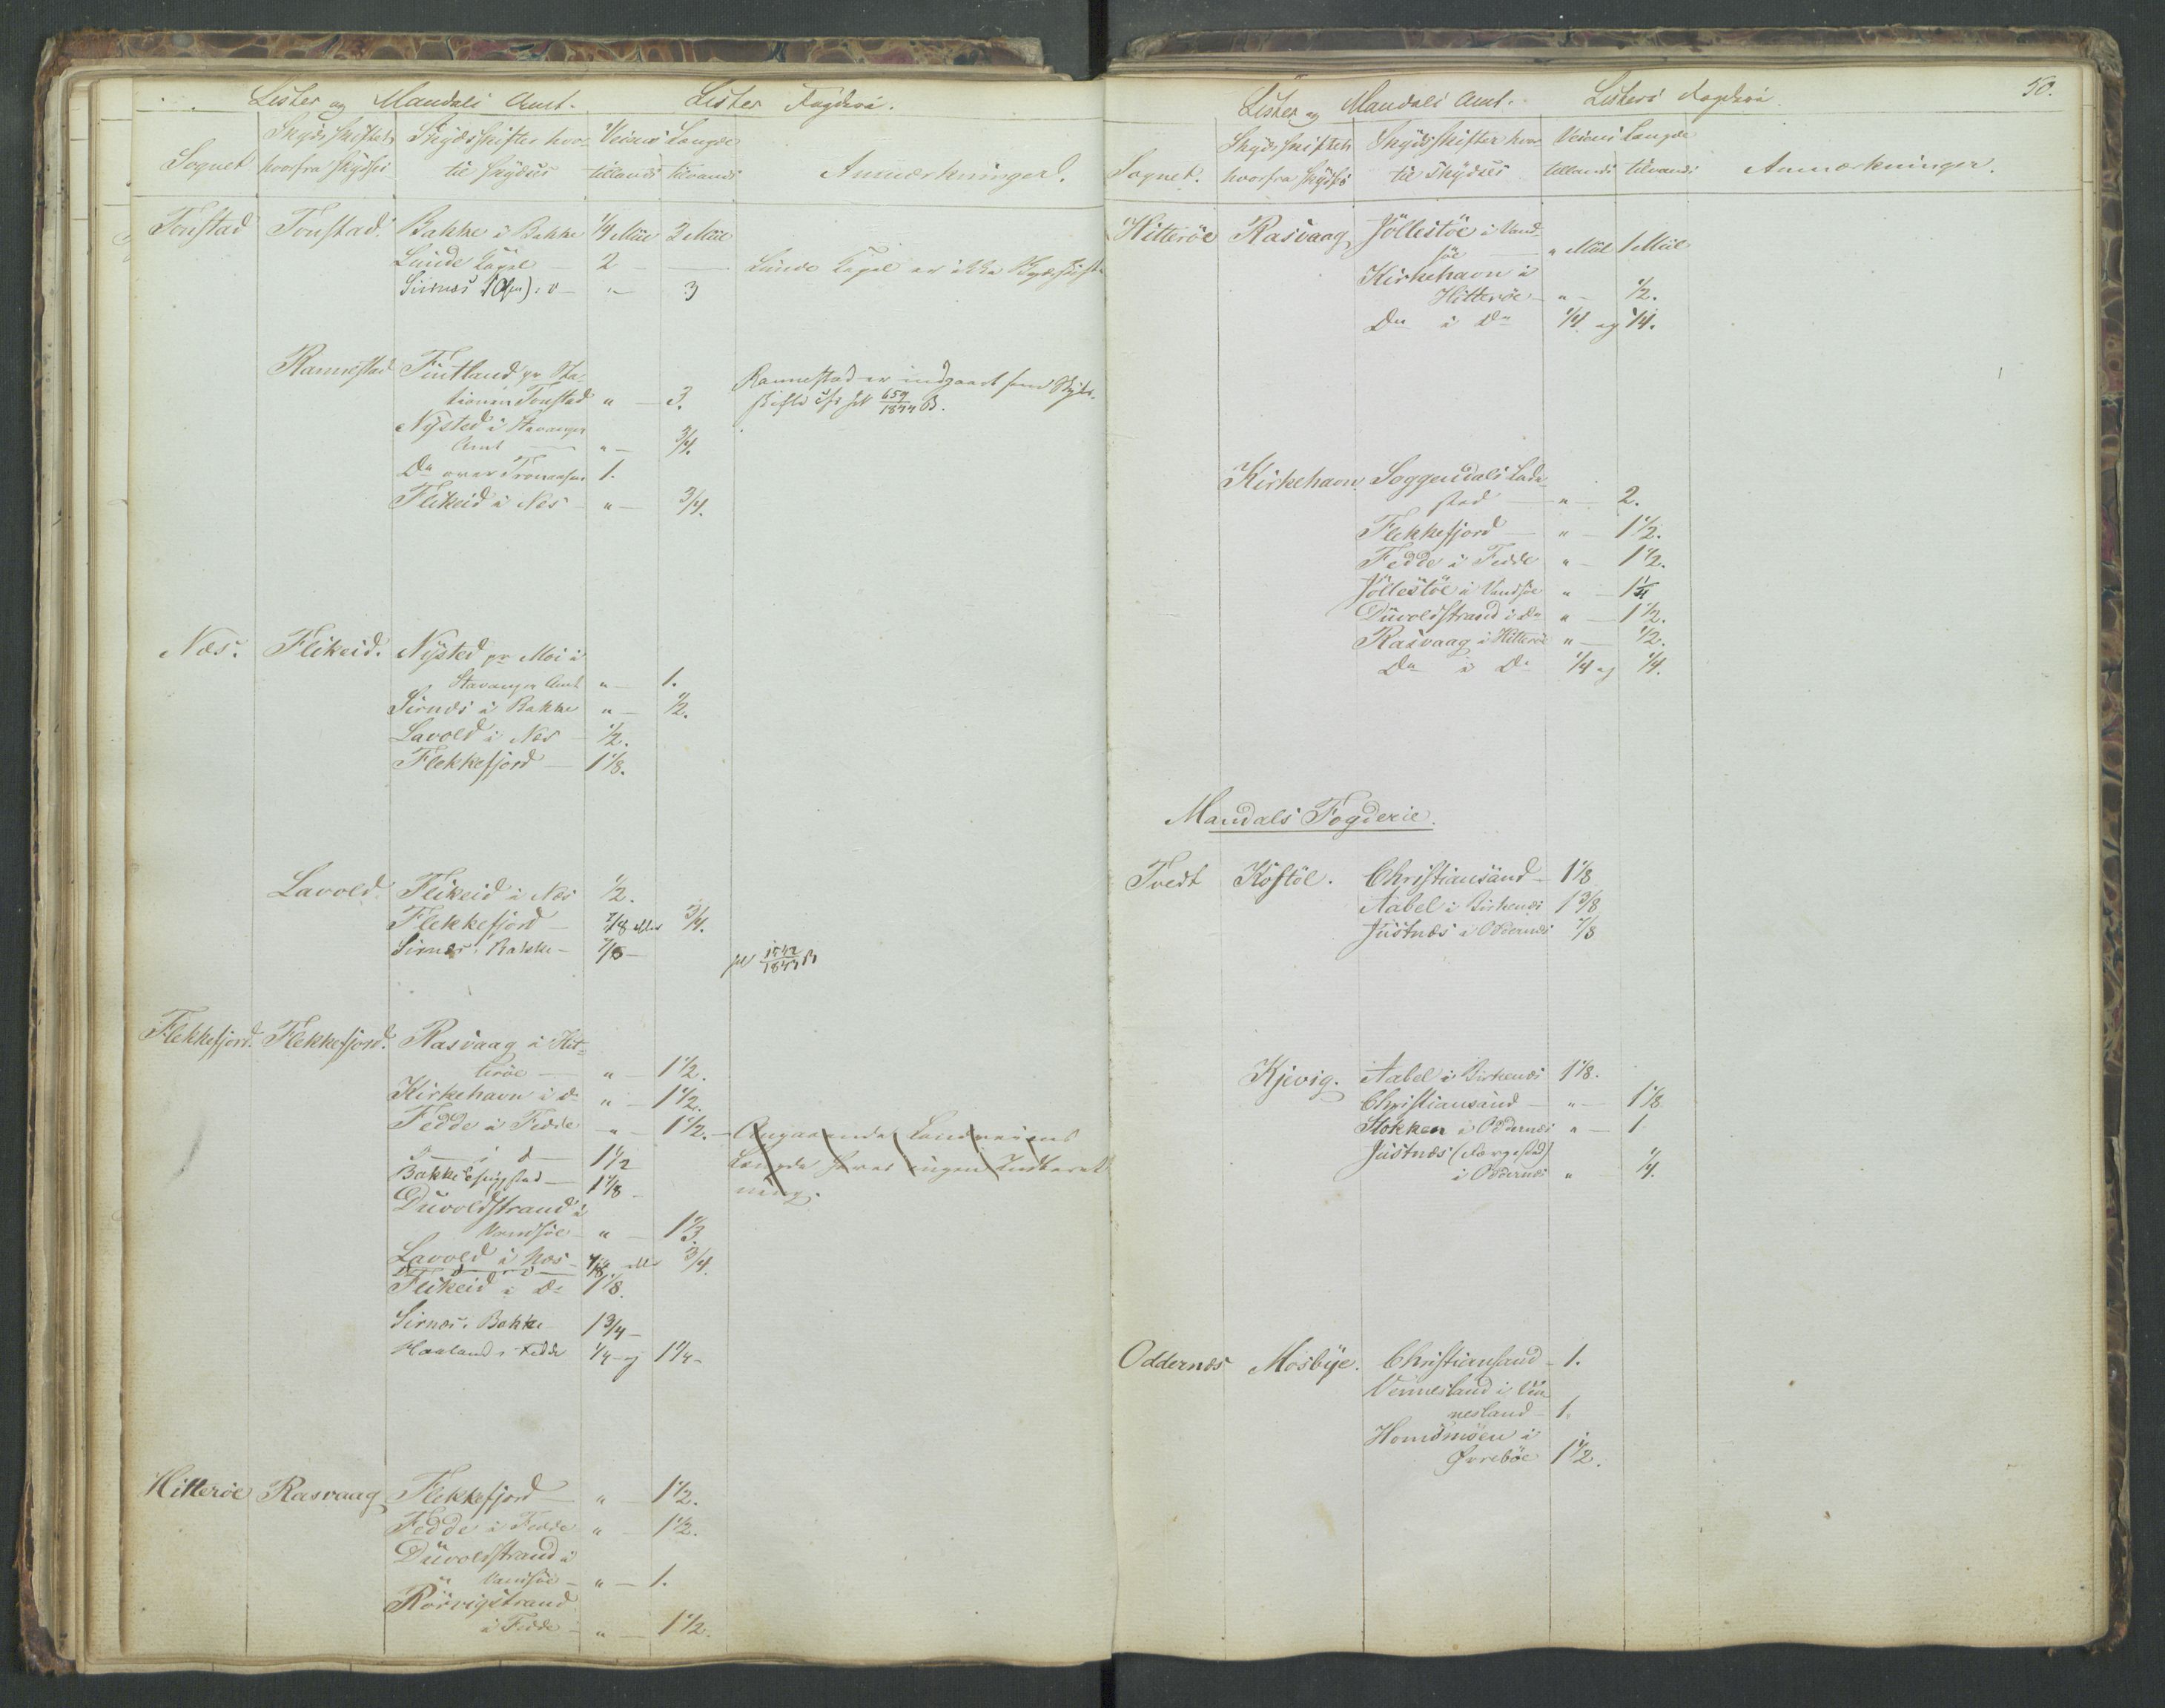 Lister og Mandals Amt. Lister Fogderi.
Sognet Skydsskiftet hvorfra skydses Skydsskifter hvortil skydses Veiens Længde tillands tilvands Anmærkninger.
Tonstad Tonstad. Bakke i Bakke 1/4 Miil 2 Miil
Lunde Capel — 2 — — Lunde Capel er ikke Skydsskift
Sirnes " — 3
Rannestad Fintland pr Sta-
tionen Tonstad " — 3. Rannestad er indgaaet som Skyds-
skifte 659/1844 B.
Nysted i Stavanger
Amt — " — 3/4.
Do over 1.
Flikeid i Nes — " — 3/4.
Næs. Flikeid. Nysted pr Moi i
Stavanger Amt " — 1.
Sirnæs i Bakke " — 1/2.
Lavold i Nes — 1/2.
Flekkefjord — 1 1/8.
Lavold Flikeid i Næs 1/2.
Flekkefjord — 7/8 eller 3/4.
Sirnæs i Bakke — 7/8 — 1843 B
Flekkefjord. Flekkefjord. Rasvaag i Hit-
terøe — " — 1 1/2.
Kirkehavn i do " — 1 1/2.
Fedde i Fedde " — 1 1/2. — Angaaende Landveiens
d — i d — 1 1/2 Længde haves ingen Indberet-
Bakke — 1 1/8 — ning.
Duvoldstrand i
Vandsøe — " — 1 1/3.
Lavold i Næs — 7/8 eller 3/4.
Flikeid i Do 1 1/8.
Sirnæs i Bakke 1 3/4 —
Haaland i Fedde 1/4 og 1 1/4 —
Hitterøe Rasvaag Flekkefjord — " — 1 1/2.
Fedde i Fedde " — 1 1/2.
Duvoldstrand i
Vandsøe — " — 1.
Rørvigstrand
i Fedde — " — 1 1/2.
50.
Lister og Mandals Amt. Listers Fogderi.
Sognet. Skydsskiftet hvorfra skydses Skydsskifter hvortil skydses Veiens Længde tillands tilvands Anmærkninger.
Hitterøe Rasvaag Jøllestøe i Vand-
søe — " Miil 1 Miil
Kirkehavn i
Hitterøe — " — 1/2.
Do i Do 1/4 og 1/4.
Kirkehavn. Soggendals Lade-
sted — " — 2.
Flekkefjord — " — 1 1/2.
Fedde i Fedde " — 1 1/2.
Jøllestøe i Vandsøe " — 1 1/4
Duvoldstrand i Do " — 1 1/2.
Rasvaag i Hitterøe " — 1/2.
Do i Do 1/4 og 1/4.
Mandals Fogderie.
Tvedt Kostøl. Christiansand — 1 1/8
Aabel i Birkenæs 1 3/8
Justnæs i Oddernæs 7/8
Kjevig. Aabel i Birkenæs 1 1/8.
Christiansand — " — 1 1/8
Stokken i Oddernæs " — 1
Justnæs (Færgested)
i Oddernæs " — 1/4.
Oddernæs Mosbye. Christiansand — 1.
Vennesland i Ven-
nesland — 1.
Homsmoen i
Øvrebøe 1 1/2.